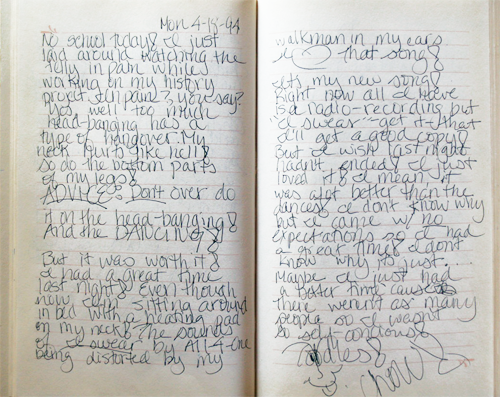 Mon 4-18-94
No school today! I just
laid around watching the
telly in pain while
working on my history
project. In pain?, you say?
Yes well too much
head-banging has a
type of hangover. My
neck hurts like hell &
so do the bottom parts
of my legs!
ADVICE: Don't over do
it on the head-banging!
And the DANCING!
But it was worth it!
I had a great time
last night! Even though
now I am sitting around
in bed with a heating pad
on my neck! The sounds
of I swear by All-4-One
being distorted by my
walkman in my ears
I ♡ that song!
It's my new song!
Right now all I have
is a radio-recording but
I "swear" get it, that
I'll get a good copy!
But I wish last night
hadn't ended! I just
loved it! I mean it
was alot better than the
dances. I don't know why
but I came w/ no
expectations so I had
a great time! I don't
know why to just....
Maybe I just had
a better time cause
there weren't as many
people so I wasn't
so self consious!
Toodles!
chow!